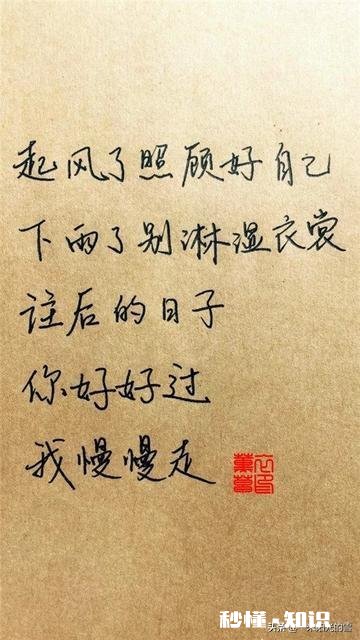 起风了照顾好自己
下雨了别淋湿衣裳
往后的日子
你好好过
我慢慢走
秒懂·知识
头条